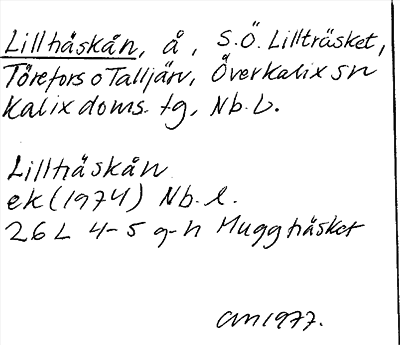 Lillhåskån, å, S.Ö. Lillträsket,
Törefors o Talljärv, Överkalix sn
Kalix doms. tg, Nb. L.
Lillhåskån
ek (1974) Nb. l.
26 L 4-5 g-h Mugghåsket
AM 1977.